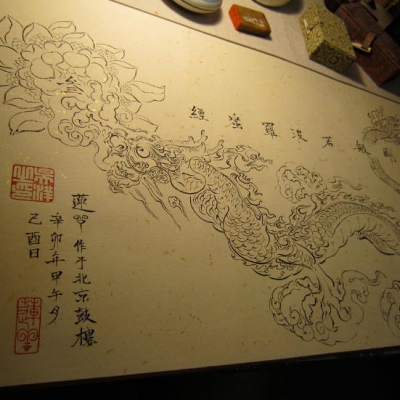 般若波羅蜜經
蓮 作于北京鼓樓
辛卯年甲午月
乙酉日